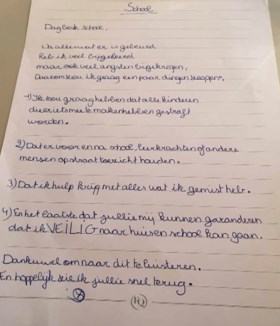 School
Dag Beste school,
Na alles wat er is gebeurd
Heb ik veel bijgeleerd
maar ook veel angsten bijgekregen,
Daarom zou ik graag een paar dingen
1) Ik zou graag hebben dat alle kinderen
die er iets mee te maken hebben gestraft
worden.
2) Dat er voor en na school, leerkrachten of andere
mensen op straat toezicht houden.
3) Dat ik hulp krijg met alles wat ik gemist heb.
4) En het laatste dat jullie mij kunnen garanderen
dat ik VEILIG naar huis en school kan gaan.
Dankuwel om naar dit te luisteren.
En hopelijk zie ik jullie snel terug.